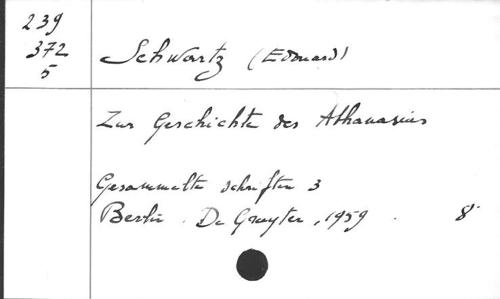 239
372
5
Schwartz (Edouard)
Zur Geschichte des Athanasius
Gesammelte schriften 3
Berlin . De Gruyter, 1959 . 8°